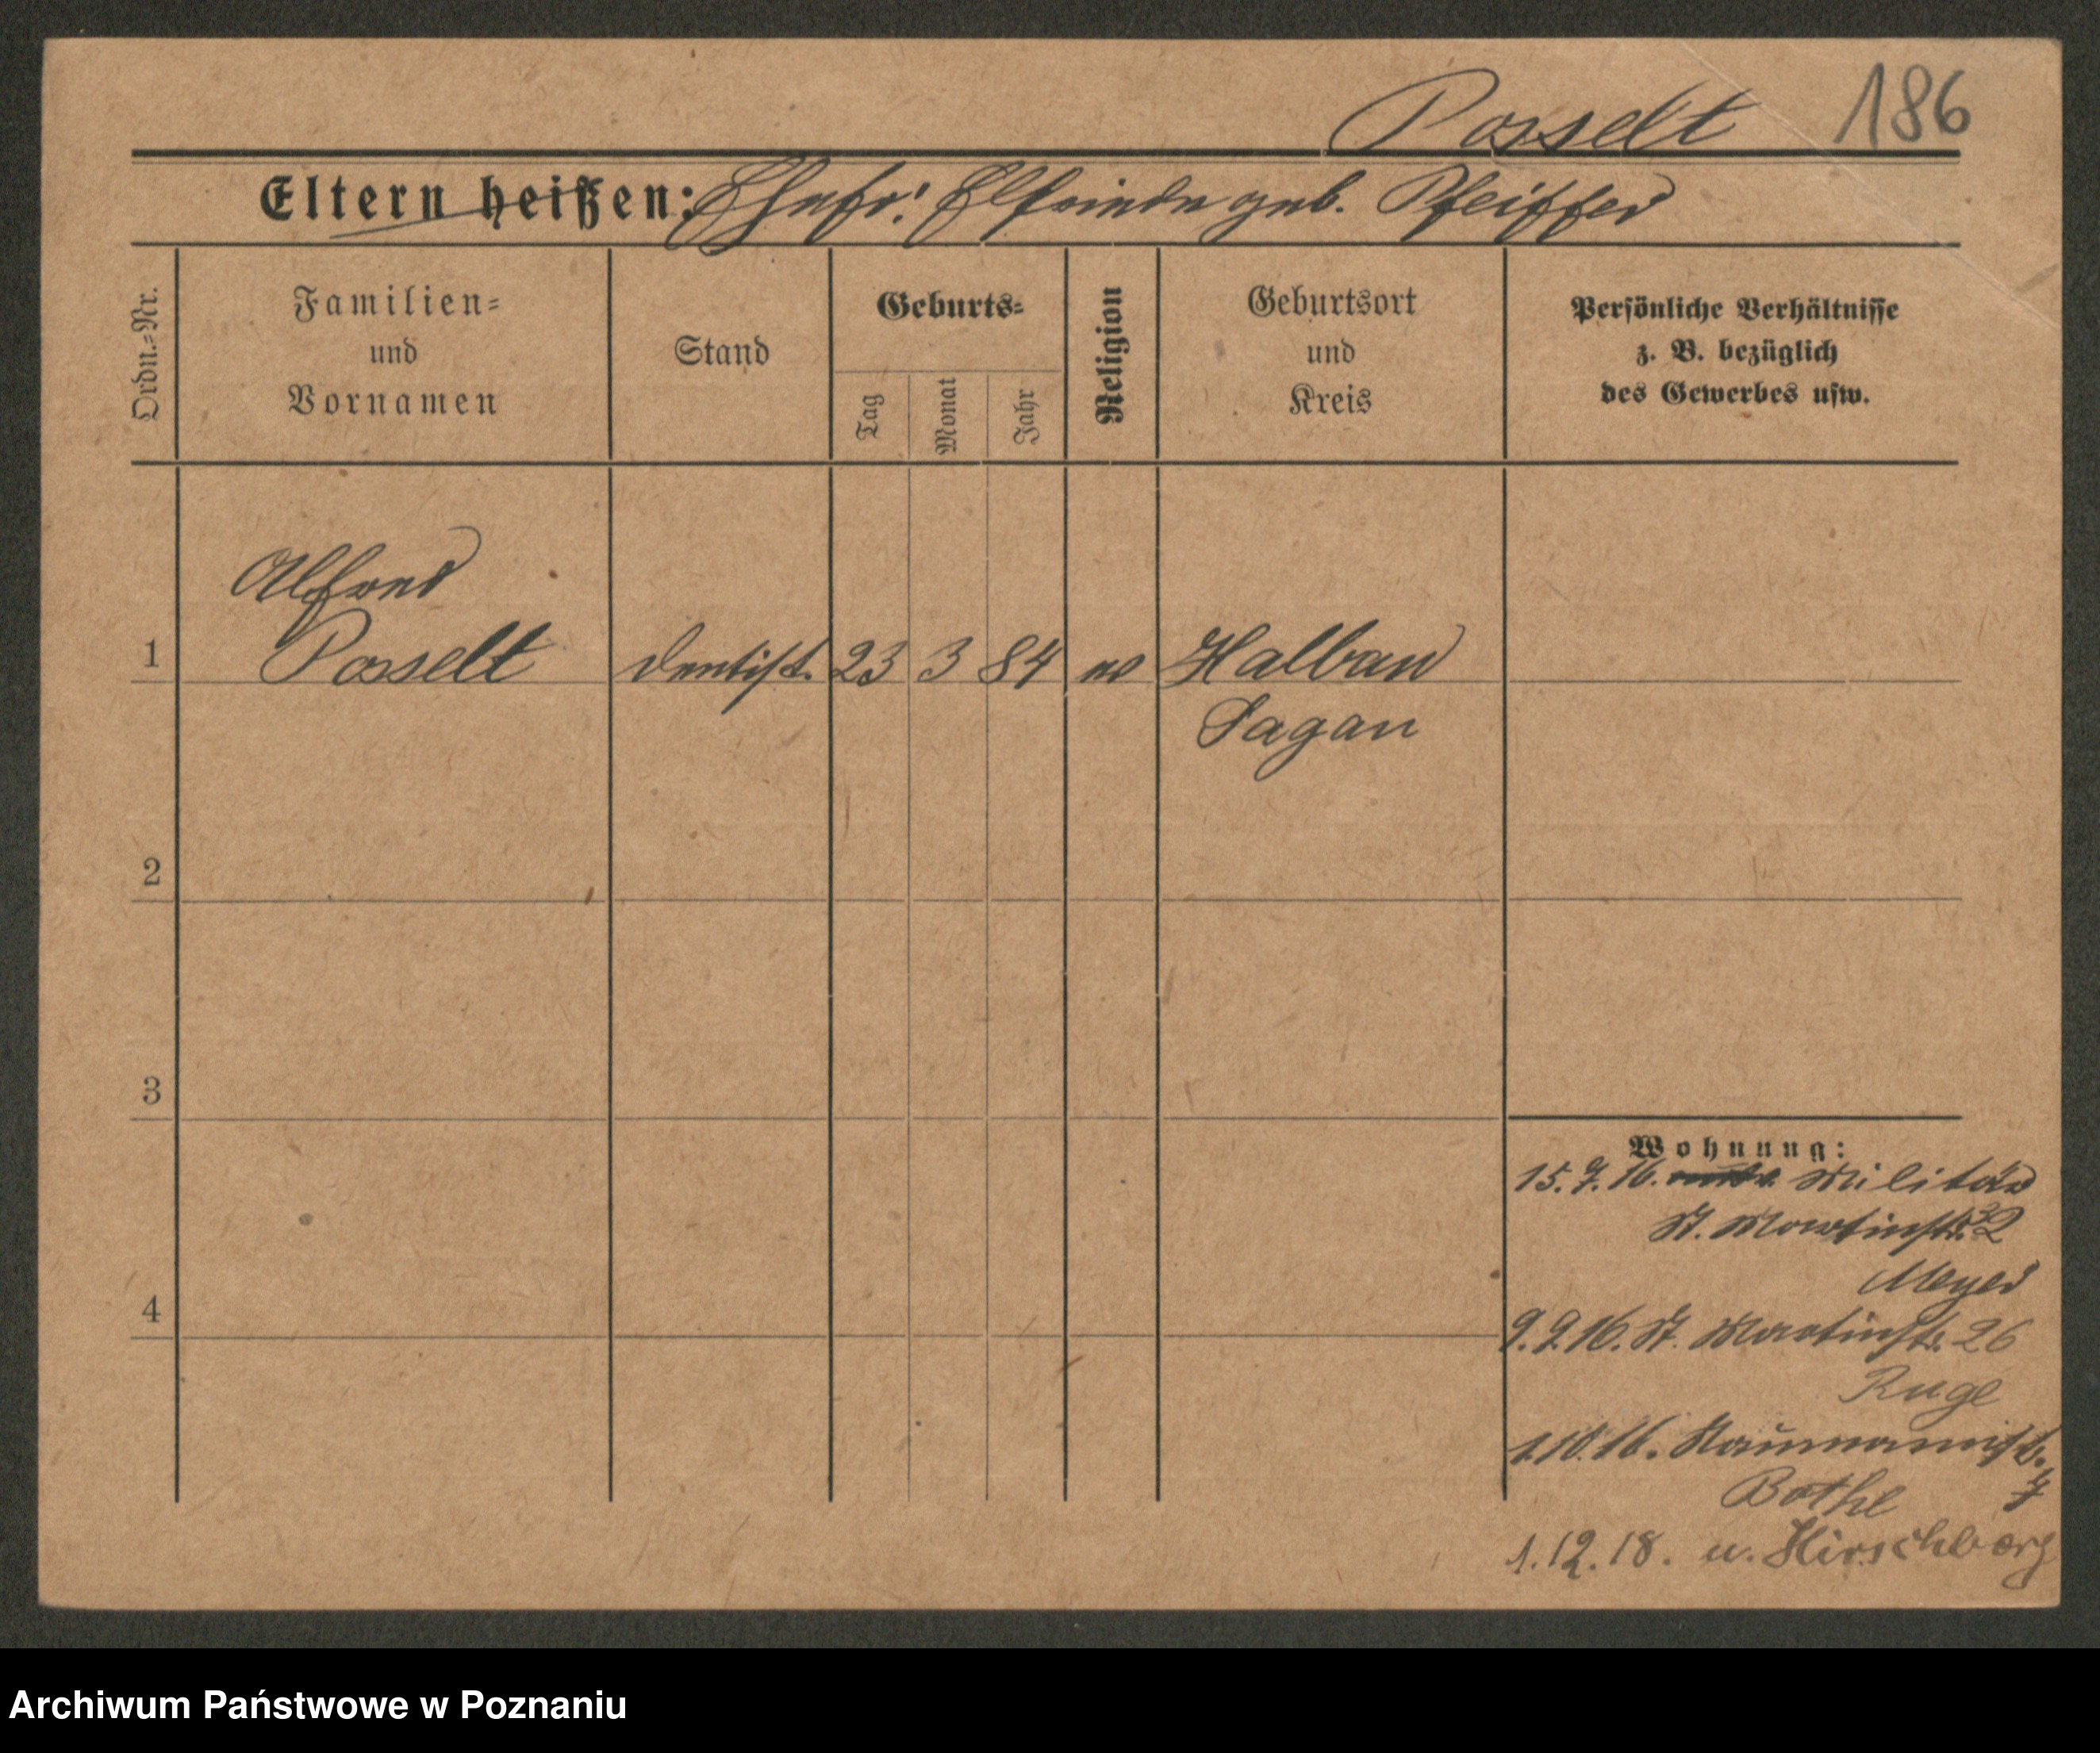 Posselt 186
Eltern heißen: Ehefr: Elfriede geb. Pfeiffer
Ordn.-Nr.
Familien-
und
Vornamen
Stand
Geburts-
Tag
Monat
Jahr
Religion
Geburtsort
und
Kreis
Persönliche Verhältnisse
z. B. bezüglich
des Gewerbes usw.
Alfred
1 Posselt Dentist. 23 3 84 ev Halbau
Sagan
2
3
4
Wohnung:
15.7.16. Militär
St. Martinstr. 32
Meyer
9.9.16. St. Martinstr. 26
Ruge
1.10.16. Naumannstr.
Bothe
1.12.18. n. Hirschberg
Archiwum Państwowe w Poznaniu